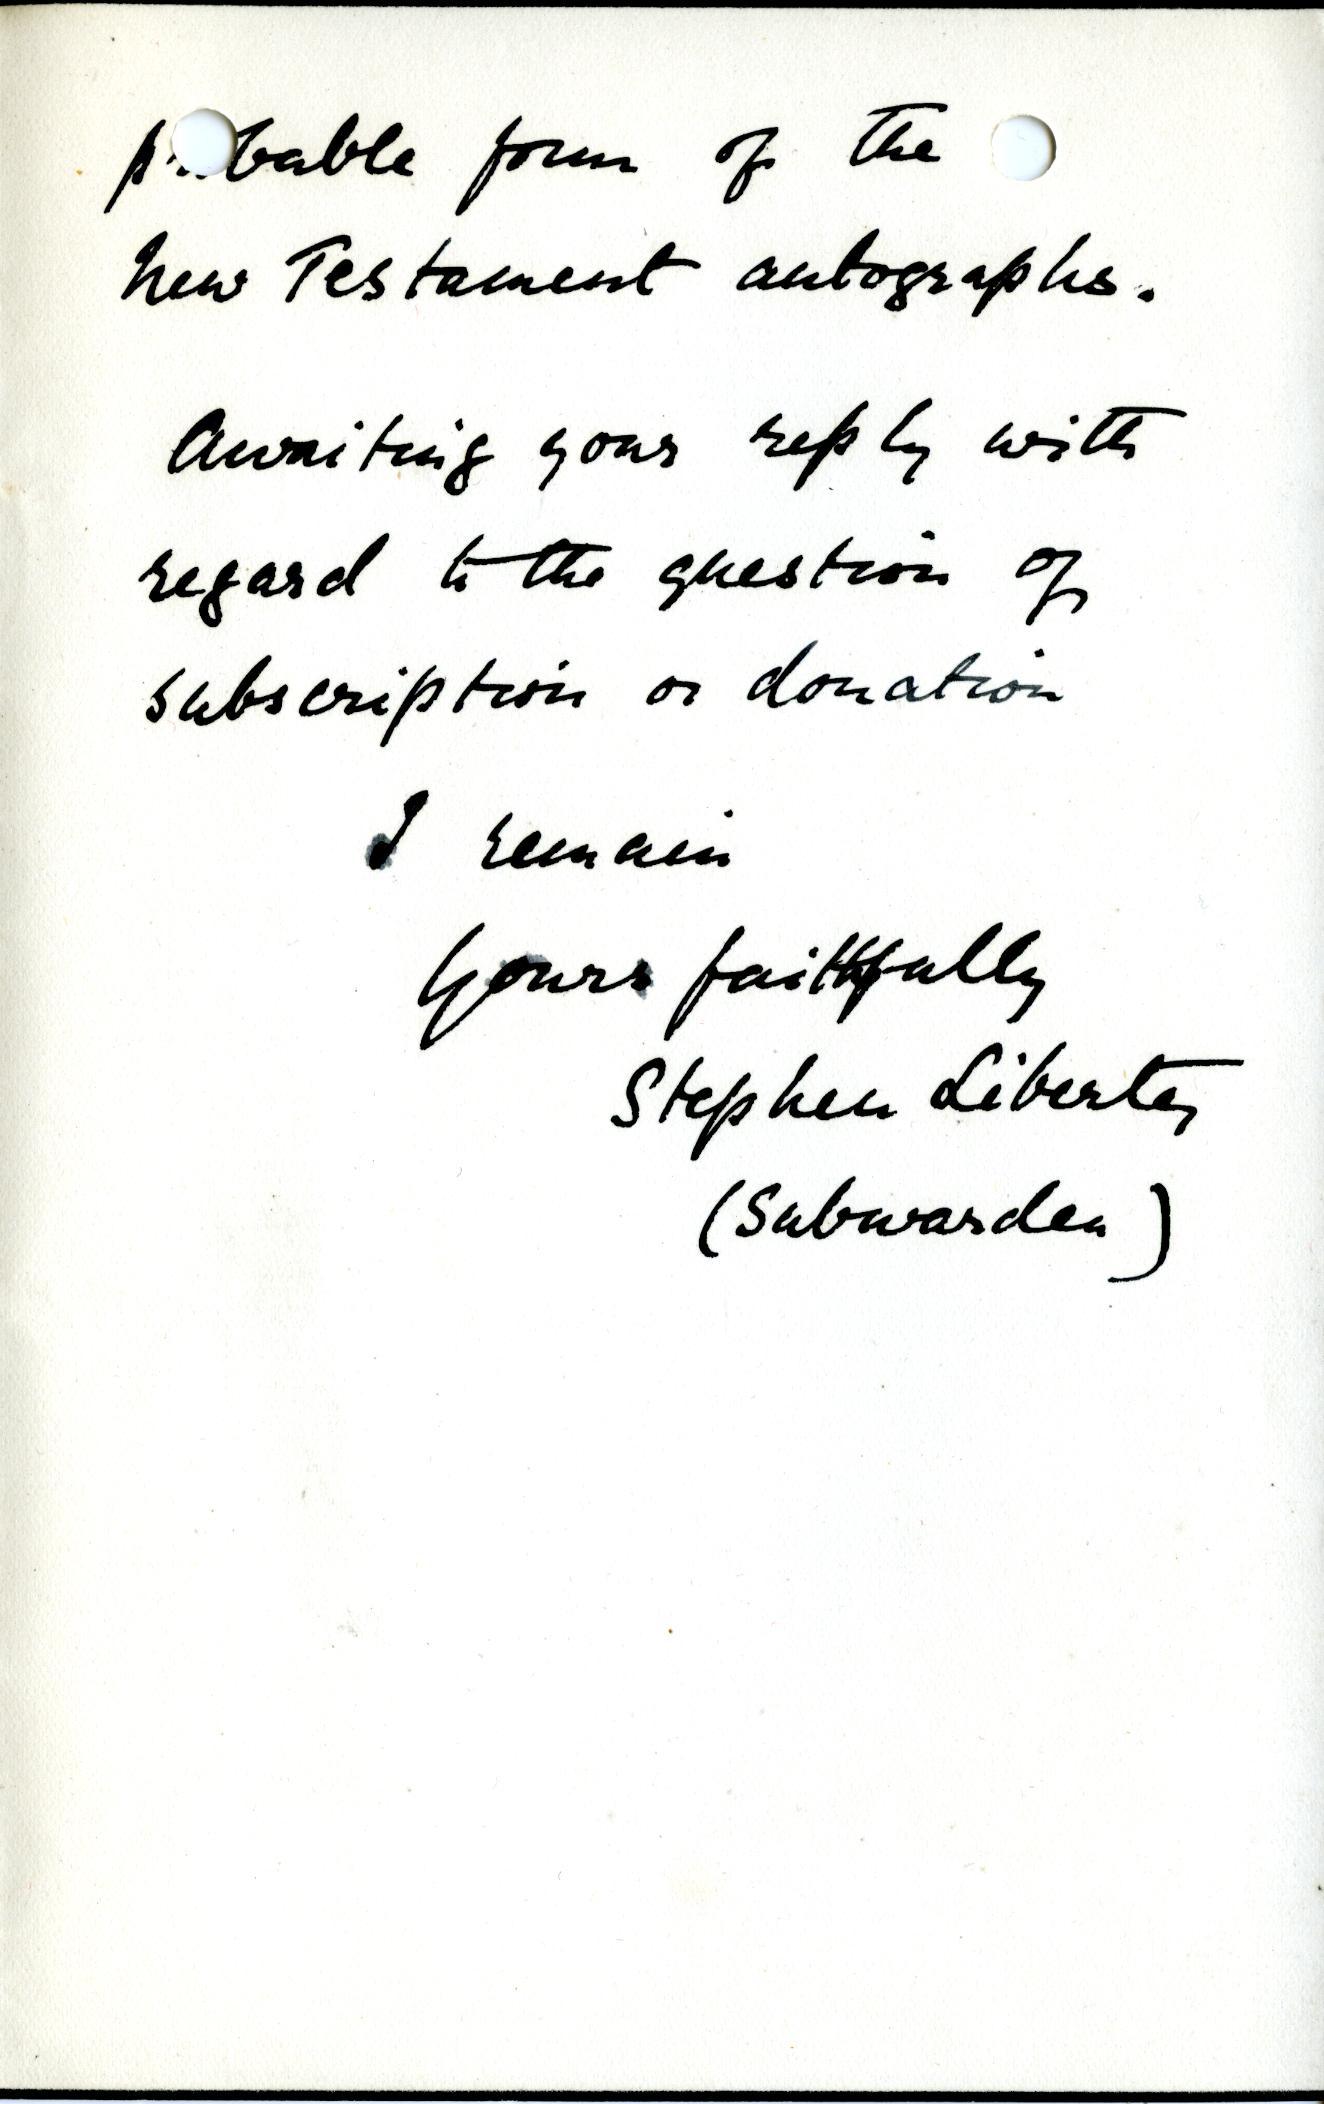 probable form of the
New Testament autographs.
Awaiting your reply with
regard to the question of
subscription or donation
I remain
Yours faithfully
Stephen Liberty
(Subwarden)